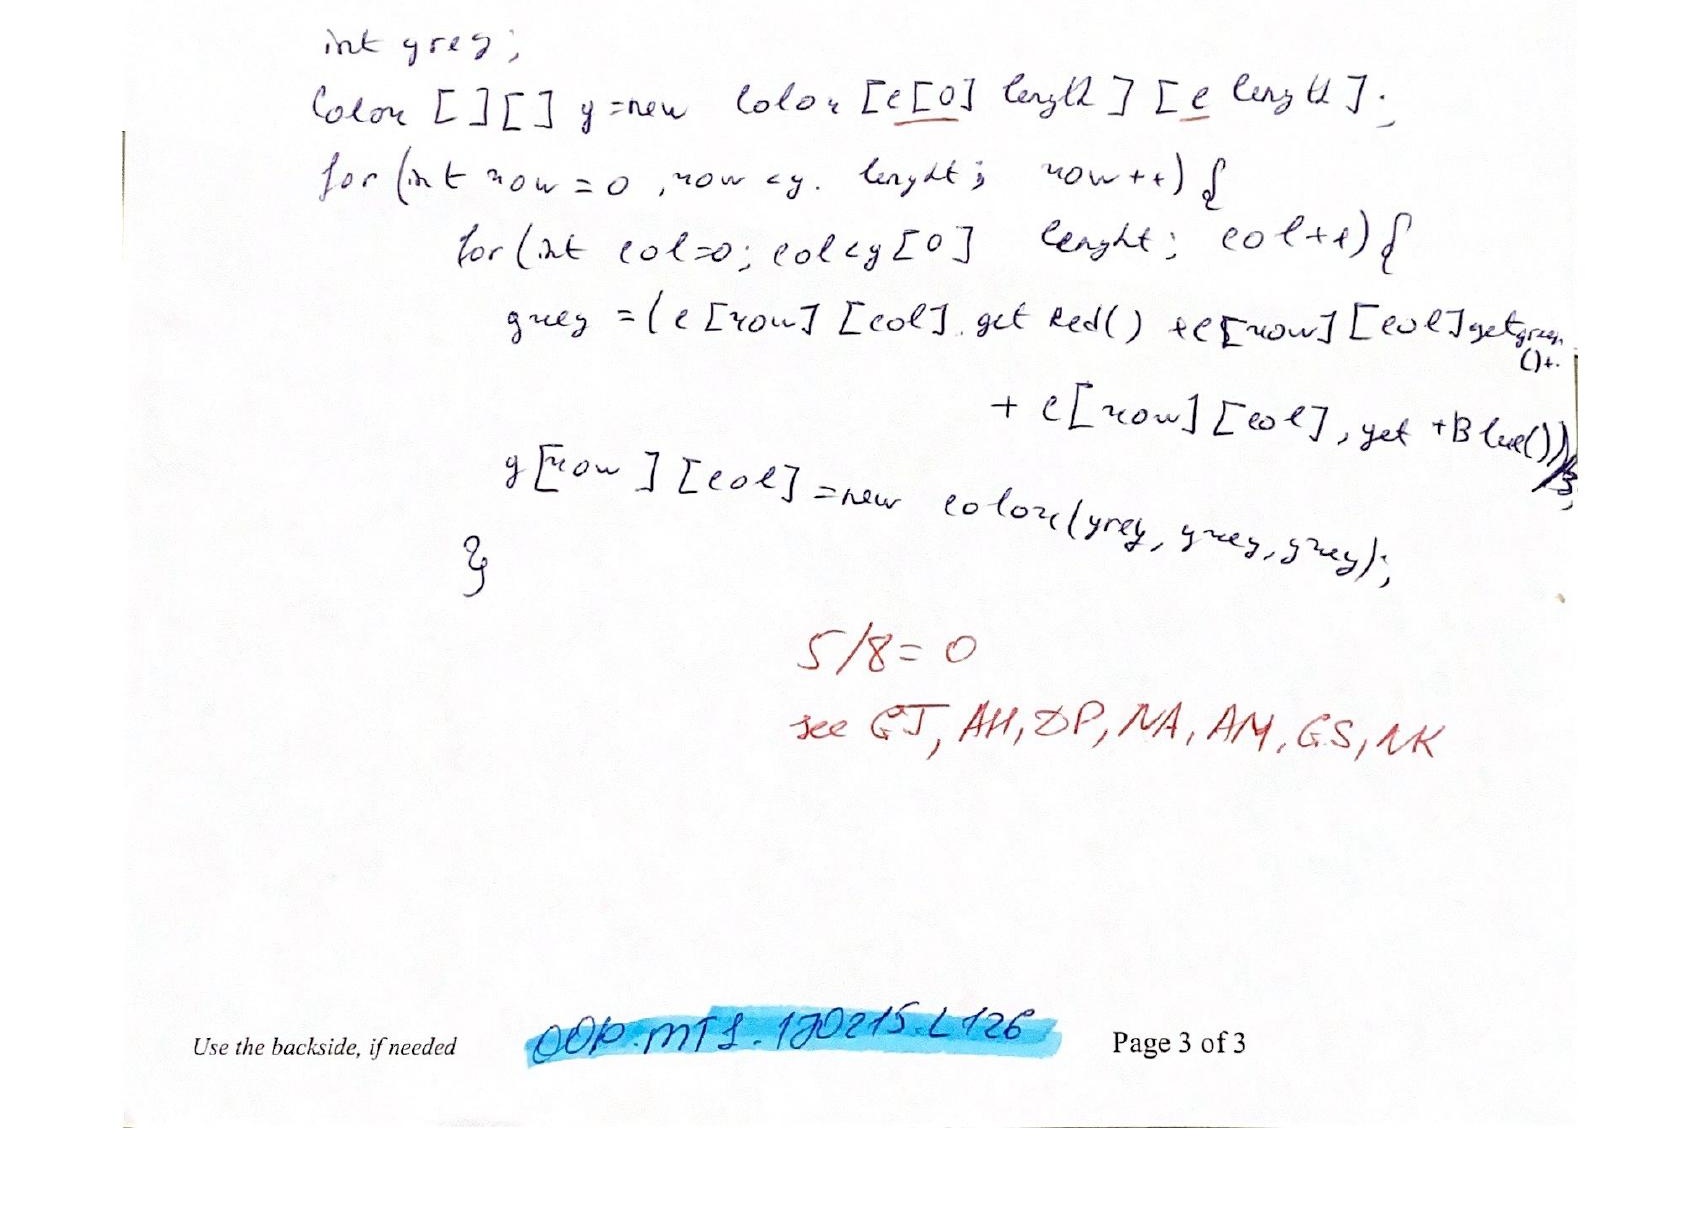 int grey;
Color [][] g = new Color [c[0] length] [c length];
for (int row = 0, row < g. lenght; row++) {
for (int col=0; col<g[0] lenght; col++) {
grey = (c [row] [col]. get Red() + c[row] [col] getgreen
()+.
+ c[row] [col], get +Blue())/3;
g[row] [col] = new color(grey, grey, grey);
}
5/8= 0
see GJ, AH, DP, NA, AM, GS, NK
Use the backside, if needed
Page 3 of 3